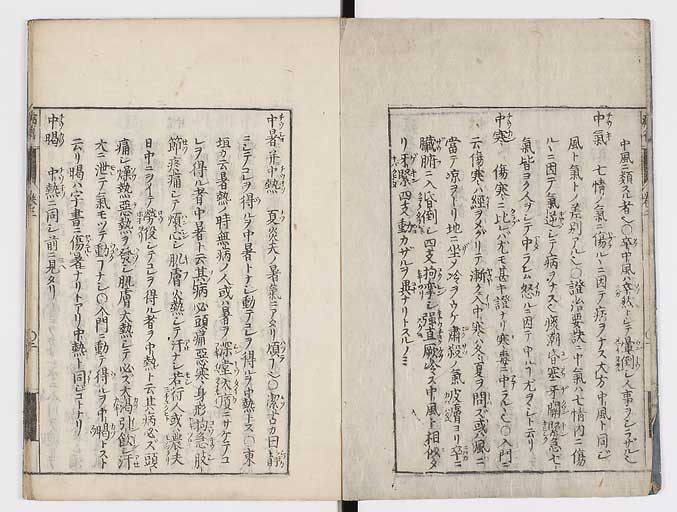 中風ニ類スル者也〇卒中風ハ卒然トシテ暈倒シ人事ヲシラズル也
中氣 七情ノ氣ニ傷ルヽニ因テ病ヲナス大方中風ト同ジ
風ト氣トノ差別アル也〇證治要訣ニ中氣ハ七情内ニ傷
ルヽニ因テ氣逆シテ病ヲナス也痰潮昏塞牙關緊急也七
氣皆ヨク人ヲシテ中ラシム怒ルニ因テ中ルヿ尤ヲヽシト云リ
中寒 傷寒ニ比レバ尤モ甚キ證ナリ寒毒ニ中ラルヽ也〇入門ニ
云傷寒ハ經ヲメグリテ漸々入中寒ハ冬夏ヲ問ズ或ハ風ニ
當テ凉ヲトリ地ニ坐テ冷ヲウケ肅殺ノ氣皮膚ヨリ卒ニ
臟腑ニ入昏倒シ四支拘攣シ強直厥冷ス中風ト相似タ
リ牙緊四支動カザルヲ異ナリトスルノミ
中暑并中熱 夏炎天ノ暑氣ニアタリ煩フ也〇潔古カ曰靜
ニシテコレヲ得ルヲ中暑トナシ動テコレヲ得ルヲ中熱トス〇東
垣カ云暑熱ノ時無病ノ人或ハ暑ヲ深堂大廈ニサケテコ
レヲ得ル者中暑ト云其病必頭痛惡寒身形拘急肢
節疼痛シテ煩心シ肌膚火熱シテ汗ナシ若行人或ハ農夫
日中ニヲイテ勞役シテコレヲ得ル者ヲ中熱ト云其病必ズ頭
痛シ燥熱惡熱ヲ發シ肌膚大熱シテ必ズ大渇引飲シ汗
大ニ泄テ氣モツテ動ヿナシ〇入門ニ動テ得ルヲ中暍トスト
云リ暍ハ字書ニ傷暑ナリトアリ中熱ト同じコトナリ
中暍 中熱ニ同シ前ニ見タリ